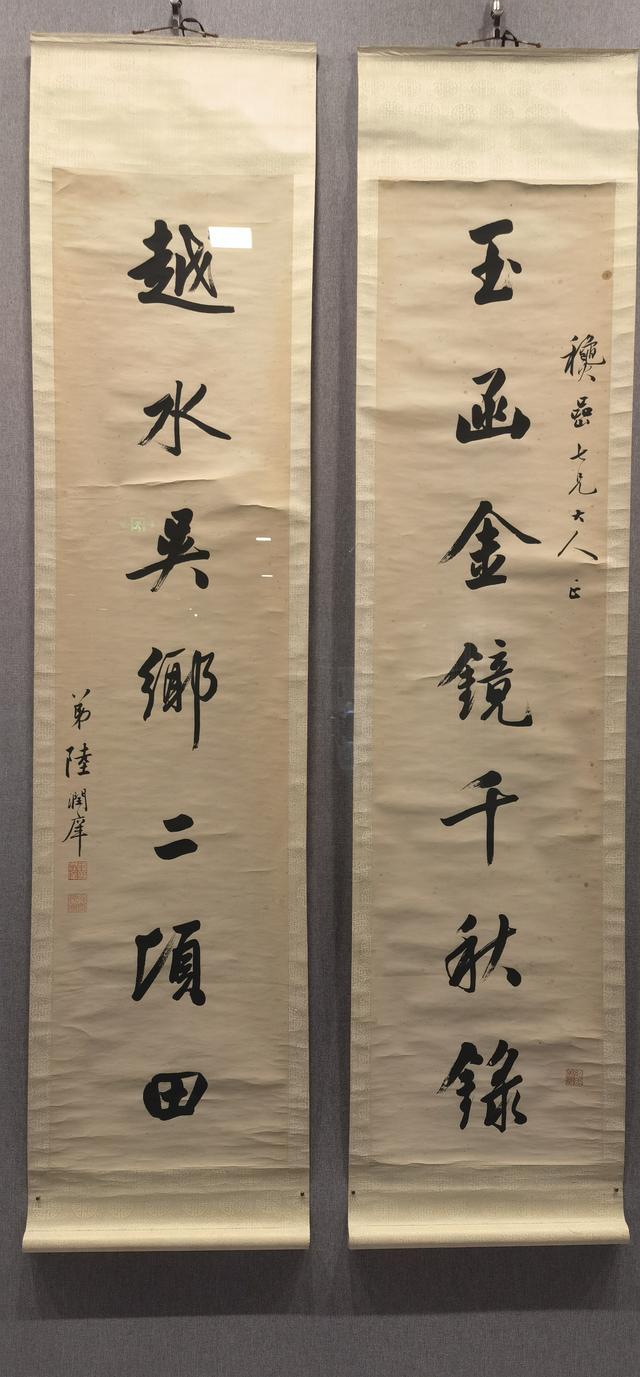 玉函金鏡千秋錄
嵒七兄大人正
越水吳鄉二頃田
弟陸潤庠